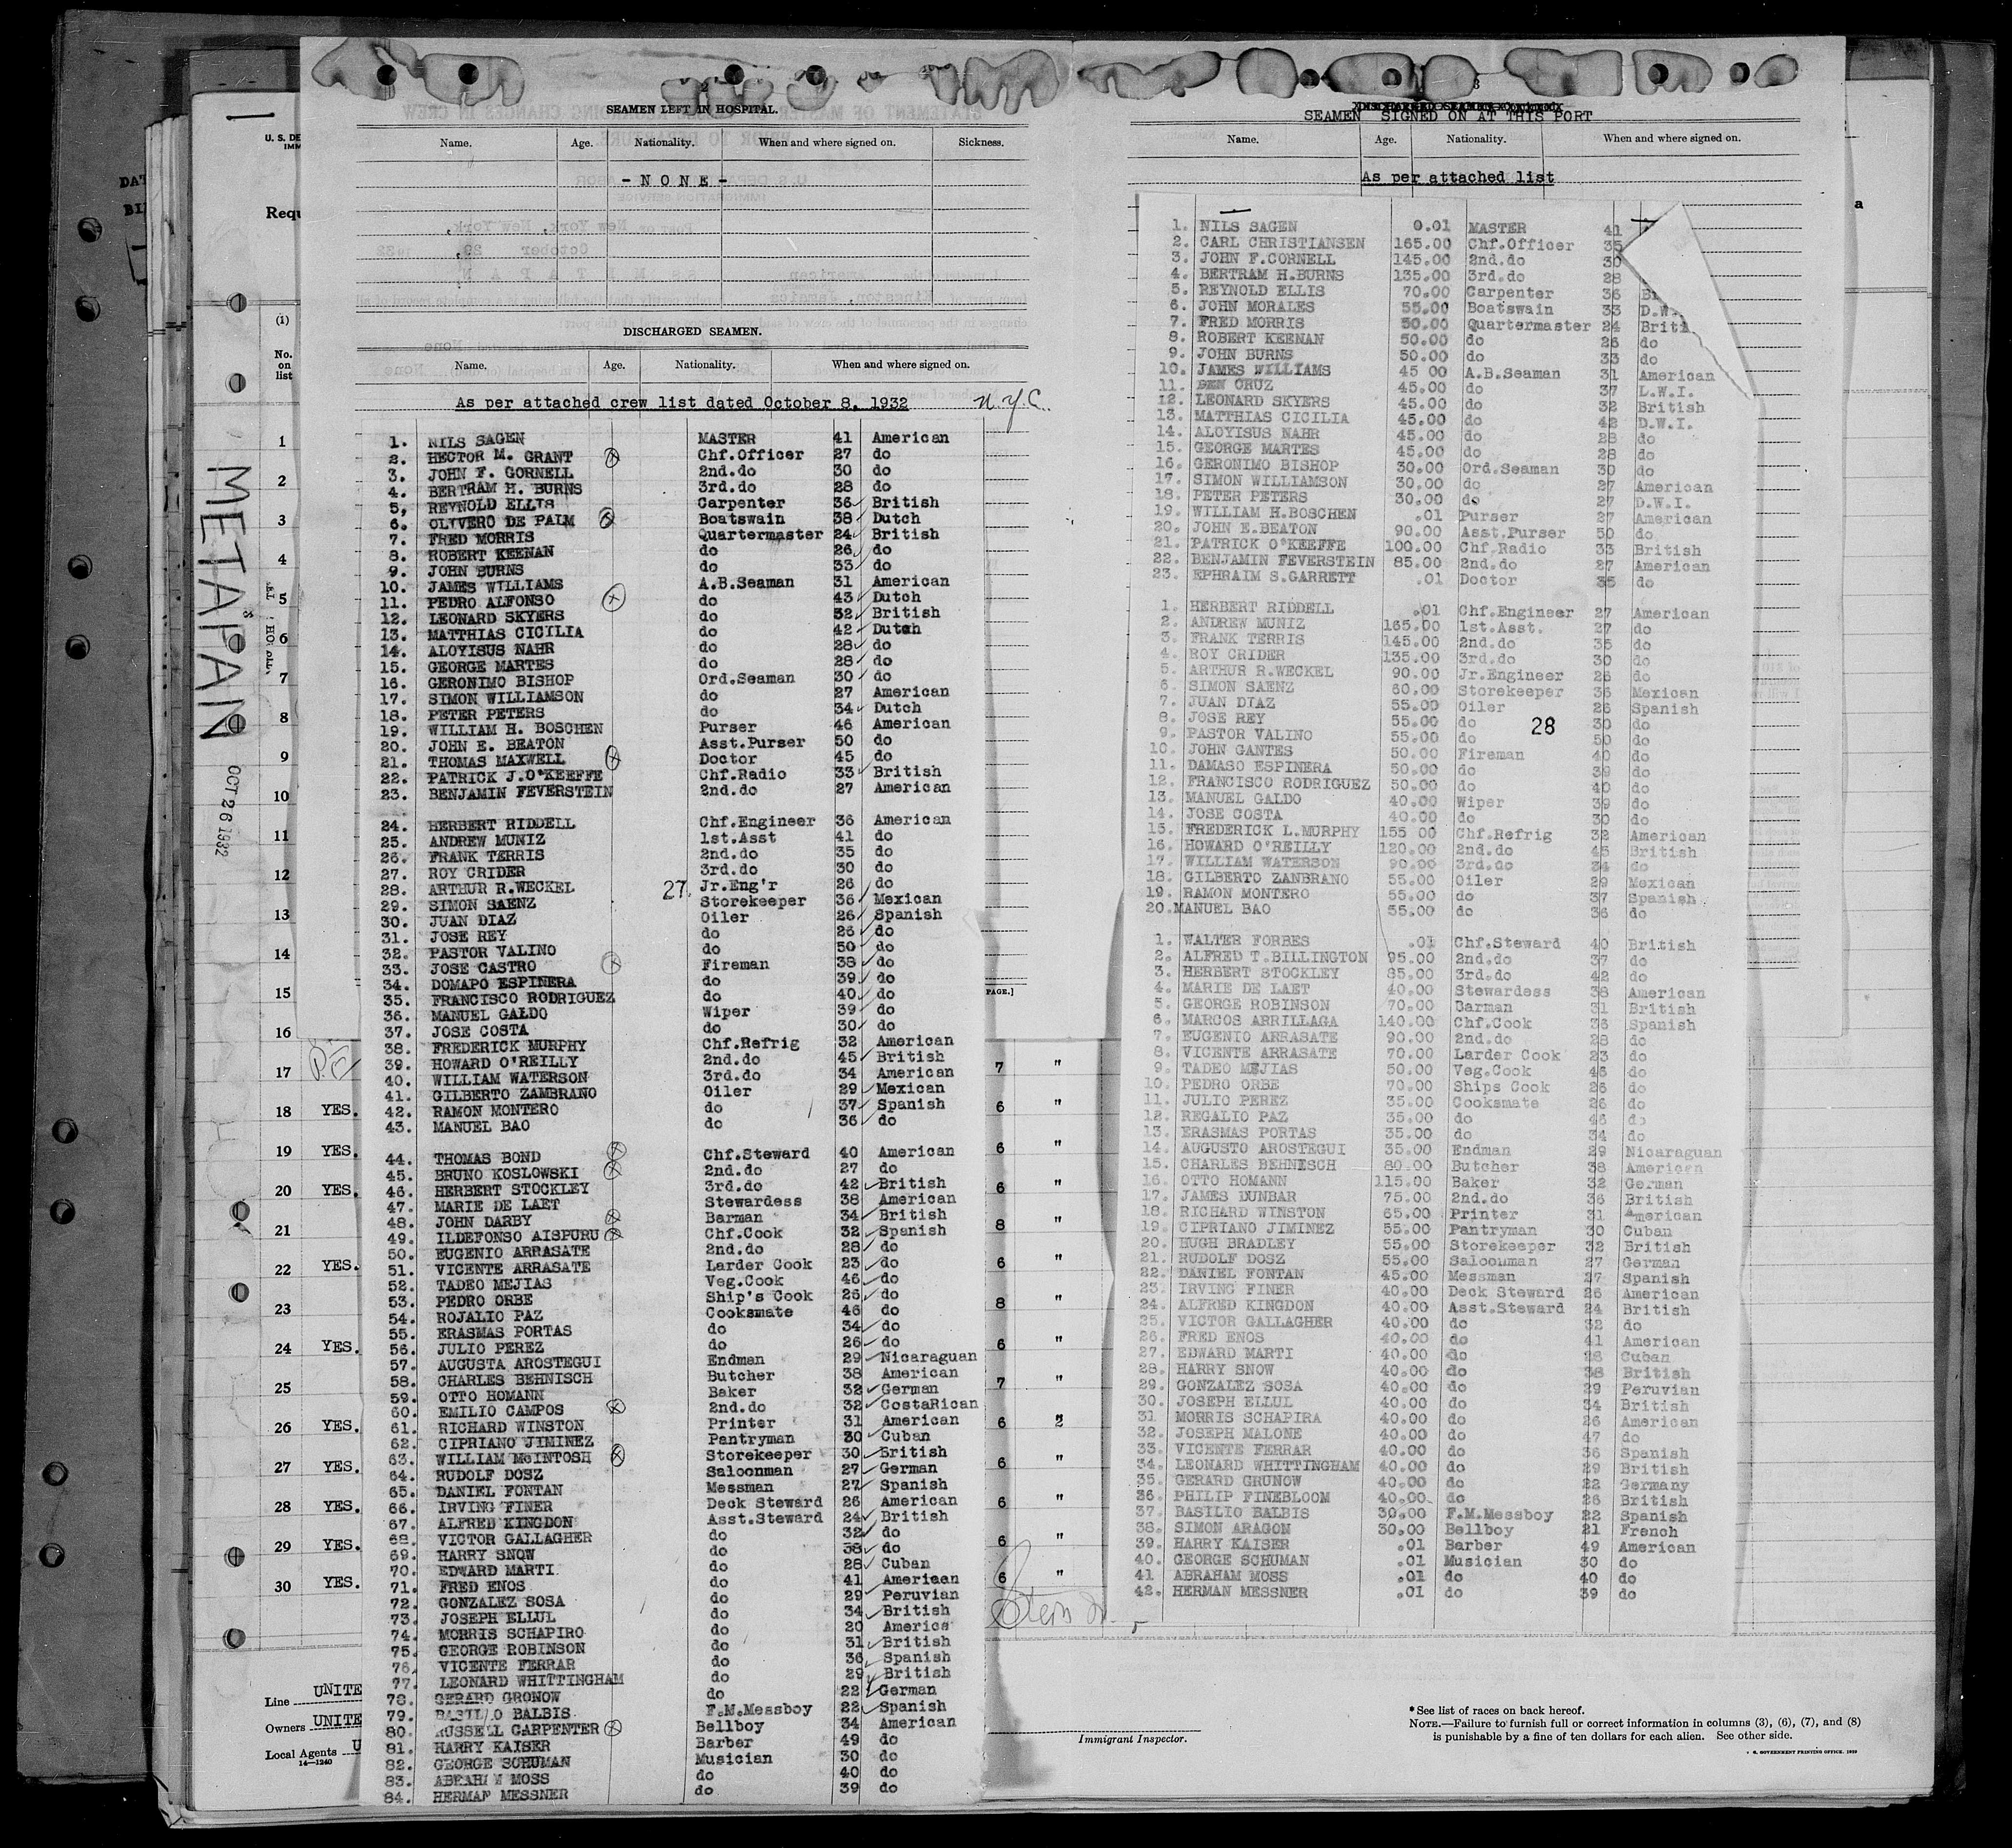 2
SEAMEN LEFT IN HOSPITAL.
Name. Age. Nationality. When and where signed on. Sickness.
- N O N E -
DISCHARGED SEAMEN.
Name. Age. Nationality. When and where signed on.
As per attached crew list dated October 8, 1932 N.Y.C.
1. NILS SAGEN MASTER 41 American
2. HECTOR M. GRANT Chf.Officer 27 do
3. JOHN F. GORNELL 2nd.do 30 do
4. BERTRAM H. BURNS 3rd.do 28 do
5, REYNOLD ELLIS Carpenter 36 British
6. OLYVERO DE PALM Boatswain 38 Dutch
7. FRED MORRIS Quartermaster 24 British
8. ROBERT KEENAN do 26 do
9. JOHN BURNS do 33 do
10. JAMES WILLIAMS A.B.Seaman 31 American
11. PEDRO ALFONSO do 43 Dutch
12. LEONARD SKYERS do 32 British
13. MATTHIAS CICILIA do 42 Dutch
14. ALOYISUS NAHR do 28 do
15. GEORGE MARTES do 28 do
16. GERONIMO BISHOP Ord.Seaman 30 do
17. SIMON WILLIAMSON do 27 American
18. PETER PETERS do 34 Dutch
19. WILLIAM H. BOSCHEN Purser 46 American
20. JOHN E. BEATON Asst.Purser 50 do
21. THOMAS MAXWELL Doctor 45 do
22. PATRICK J.O'KEEFFE Chf.Radio 33 British
23. BENJAMIN FEVERSTEIN 2nd.do 27 American
24. HERBERT RIDDELL Chf.Engineer 36 American
25. ANDREW MUNIZ 1st.Asst 41 do
26. FRANK TERRIS 2nd.do 35 do
27. ROY CRIDER 3rd.do 30 do
28. ARTHUR R.WECKEL 27. Jr.Eng'r 26 do
29. SIMON SAENZ Storekeeper 36 Mexican
30. JUAN DIAZ Oiler 26 Spanish
31. JOSE REY do 26 do
32. PASTOR VALINO do 50 do
33. JOSE CASTRO Fireman 38 do
34. DOMAPO ESPINERA do 39 do
35. FRANCISCO RODRIGUEZ do 40 do
36. MANUEL GALDO Wiper 39 do
37. JOSE COSTA do 30 do
38. FREDERICK MURPHY Chf.Refrig 32 American
39. HOWARD O'REILLY 2nd.do 45 British
40. WILLIAM WATERSON 3rd.do 34 American
41. GILBERTO ZAMBRANO Oiler 29 Mexican
42. RAMON MONTERO do 37 Spanish
43. MANUEL BAO do 36 do
44. THOMAS BOND Chf.Steward 40 American
45. BRUNO KOSLOWSKI 2nd.do 27 do
46. HERBERT STOCKLEY 3rd.do 42 British
47. MARIE DE LAET Stewardess 38 American
48. JOHN DARBY Barman 34 British
49. ILDEFONSO AISPURU Chf.Cook 32 Spanish
50. EUGENIO ARRASATE 2nd.do 28 do
51. VICENTE ARRASATE Larder Cook 23 do
52. TADEO MEJIAS Veg.Cook 46 do
53. PEDRO ORBE Ship's Cook 26 do
54. ROJALIO PAZ Cooksmate 46 do
55. ERASMAS PORTAS do 34 do
56. JULIO PEREZ do 26 do
57. AUGUSTA AROSTEGUI Endman 29 Nicaraguan
58. CHARLES BEHNISCH Butcher 38 American
59. OTTO HOMANN Baker 32 German
60. EMILIO CAMPOS 2nd.do 32 CostaRican
61. RICHARD WINSTON Printer 31 American
62. CIPRIANO JIMINEZ Pantryman 30 Cuban
63. WILLIAM McINTOSH Storekeeper 30 British
64. RUDOLF DOSZ Saloonman 27 German
65. DANIEL FONTAN Messman 27 Spanish
66. IRVING FINER Deck Steward 26 American
67. ALFRED KINGDON Asst.Steward 24 British
68. VICTOR GALLAGHER do 32 do
69. HARRY SNOW do 38 do
70. EDWARD MARTI. do 28 Cuban
71. FRED ENOS do 41 American
72. GONZALEZ SOSA do 29 Peruvian
73. JOSEPH ELLUL do 34 British
74. MORRIS SCHAPIRO do 20 America
75. GEORGE ROBINSON do 31 British
76. VICENTE FERRAR do 36 Spanish
77. LEONARD WHITTINGHAM do 29 British
78. GERARD GRONOW do 22 German
79. BASILIO BALBIS F.M.Messboy 22 Spanish
80. RUSSELL CARPENTER Bellboy 34 American
81. HARRY KAISER Barber 49 do
82. GEORGE SCHUMAN Musician 30 do
83. ABRAHAM MOSS do 40 do
84. HERMAN MESSNER do 39 do
3
SEAMEN SIGNED ON AT THIS PORT
Name. Age. Nationality. When and where signed on.
As per attached list
1. NILS SAGEN 0.01 MASTER 41
2. CARL CHRISTIANSEN 165.00 Chf.Officer 35
3. JOHN F.CORNELL 145.00 2nd.do 30
4. BERTRAM H.BURNS 135.00 3rd.do 28
5. REYNOLD ELLIS 70.00 Carpenter 36
6. JOHN MORALES 55.00 Boatswain 33 D.W.
7. FRED MORRIS 50.00 Quartermaster 24 Briti
8. ROBERT KEENAN 50.00 do 26 do
9. JOHN BURNS 50.00 do 33 do
10. JAMES WILLIAMS 45 00 A.B.Seaman 31 American
11. BEN CRUZ 45.00 do 37 L.W.I.
12. LEONARD SKYERS 45.00 do 32 British
13. MATTHIAS CICILIA 45.00 do 42 D.W.I.
14. ALOYISUS NAHR 45.00 do 28 do
15. GEORGE MARTES 45.00 do 28 do
16. GERONIMO BISHOP 30.00 Ord.Seaman 30 do
17. SIMON WILLIAMSON 30.00 do 27 American
18. PETER PETERS 30.00 do 27 D.W.I.
19. WILLIAM H.BOSCHEN .01 Purser 27 American
20. JOHN E.BEATON 90.00 Asst.Purser 50 do
21. PATRICK O'KEEFFE 100.00 Chf.Radio 33 British
22. BENJAMIN FEVERSTEIN 85.00 2nd.do 27 American
23. EPHRAIM S.GARRETT .01 Doctor 35 do
1. HERBERT RIDDELL .01 Chf.Engineer 27 American
2. ANDREW MUNIZ 165.00 1st.Asst. 27 do
3. FRANK TERRIS 145.00 2nd.do 35 do
4. ROY CRIDER 135.00 3rd.do 30 do
5. ARTHUR R.WECKEL 90.00 Jr.Engineer 26 do
6. SIMON SAENZ 60.00 Storekeeper 36 Mexican
7. JUAN DIAZ 55.00 Oiler 26 Spanish
8. JOSE REY 55.00 do 28 30 do
9. PASTOR VALINO 55.00 do 50 do
10. JOHN GANTES 50.00 Fireman 40 do
11. DAMASO ESPINERA 50.00 do 39 do
12. FRANCISCO RODRIGUEZ 50.00 do 40 do
13. MANUEL GALDO 40.00 Wiper 39 do
14. JOSE COSTA 40.00 do 30 do
15. FREDERICK L.MURPHY 155 00 Chf.Refrig 32 American
16. HOWARD O'REILLY 120.00 2nd.do 45 British
17. WILLIAM WATERSON 90.00 3rd.do 34 do
18. GILBERTO ZANBRANO 55.00 Oiler 29 Mexican
19. RAMON MONTERO 55.00 do 37 Spanish
20.MANUEL BAO 55.00 do 36 do
1. WALTER FORBES .01 Chf.Steward 40 British
2. ALFRED T.BILLINGTON 95.00 2nd.do 37 do
3. HERBERT STOCKLEY 85.00 3rd.do 42 do
4. MARIE DE LAET 40.00 Stewardess 38 American
5. GEORGE ROBINSON 70.00 Barman 31 British
6. MARCOS ARRILLAGA 140.00 Chf.Cook 36 Spanish
7. EUGENIO ARRASATE 90.00 2nd.do 28 do
8. VICENTE ARRASATE 70.00 Larder Cook 23 do
9. TADEO MEJIAS 50.00 Veg.Cook 46 do
10. PEDRO ORBE 70.00 Ships Cook 26 do
11. JULIO PEREZ 35.00 Cooksmate 26 do
12. REGALIO PAZ 35.00 do 46 do
13. ERASMAS PORTAS 35.00 do 34 do
14. AUGUSTO AROSTEGUI 35.00 Endman 29 Nicaraguan
15. CHARLES BEHNISCH 80.00 Butcher 38 American
16. OTTO HOMANN 115.00 Baker 32 German
17. JAMES DUNBAR 75.00 2nd.do 36 British
18. RICHARD WINSTON 65.00 Printer 31 American
19. CIPRIANO JIMINEZ 55.00 Pantryman 30 Cuban
20. HUGH BRADLEY 55.00 Storekeeper 32 British
21. RUDOLF DOSZ 55.00 Saloonman 27 German
22. DANIEL FONTAN 45.00 Messman 27 Spanish
23. IRVING FINER 40.00 Deck Steward 26 American
24. ALFRED KINGDON 40.00 Asst.Steward 24 British
25. VICTOR GALLAGHER 40.00 do 32 do
26. FRED ENOS 40.00 do 41 American
27. EDWARD MARTI 40.00 do 28 Cuban
28. HARRY SNOW 40.00 do 38 British
29. GONZALEZ SOSA 40.00 do 29 Peruvian
30. JOSEPH ELLUL 40.00 do 34 British
31 MORRIS SCHAPIRA 40.00 do 26 American
32. JOSEPH MALONE 40.00 do 47 do
33. VICENTE FERRAR 40.00 do 36 Spanish
34. LEONARD WHITTINGHAM 40.00 do 29 British
35. GERARD GRUNOW 40.00 do 22 Germany
36. PHILIP FINEBLOOM 40.00 do 26 British
37. BASILIO BALBIS 30.00 F.M.Messboy 22 Spanish
38. SIMON ARAGON 30.00 Bellboy 21 French
39. HARRY KAISER .01 Barber 49 American
40. GEORGE SCHUMAN .01 Musician 30 do
41 ABRAHAM MOSS .01 do 40 do
42. HERMAN MESSNER .01 do 39 do
U. S. DE
IMM
Requ
(1)
No.
on
list
METAPAN
OCT 26 1932
1
2
3
4
5
6
7
8
9
10
11
12
13
14
15
PAGE.]
16
17 7 "
18 YES. 6 "
19 YES. 6 "
20 YES. 6 "
21 8 "
22 YES. 6 "
23 8 "
24 YES. 6
25 7 "
26 YES. 6 "
27 YES. 6 "
28 YES. 6 "
29 YES. 6 "
30 YES. 6 "
Line UNITE
Owners UNITE
Local Agents U
14—1240
Immigrant Inspector.
*See list of races on back hereof.
NOTE.—Failure to furnish full or correct information in columns (3), (6), (7), and (8)
is punishable by a fine of ten dollars for each alien. See other side.